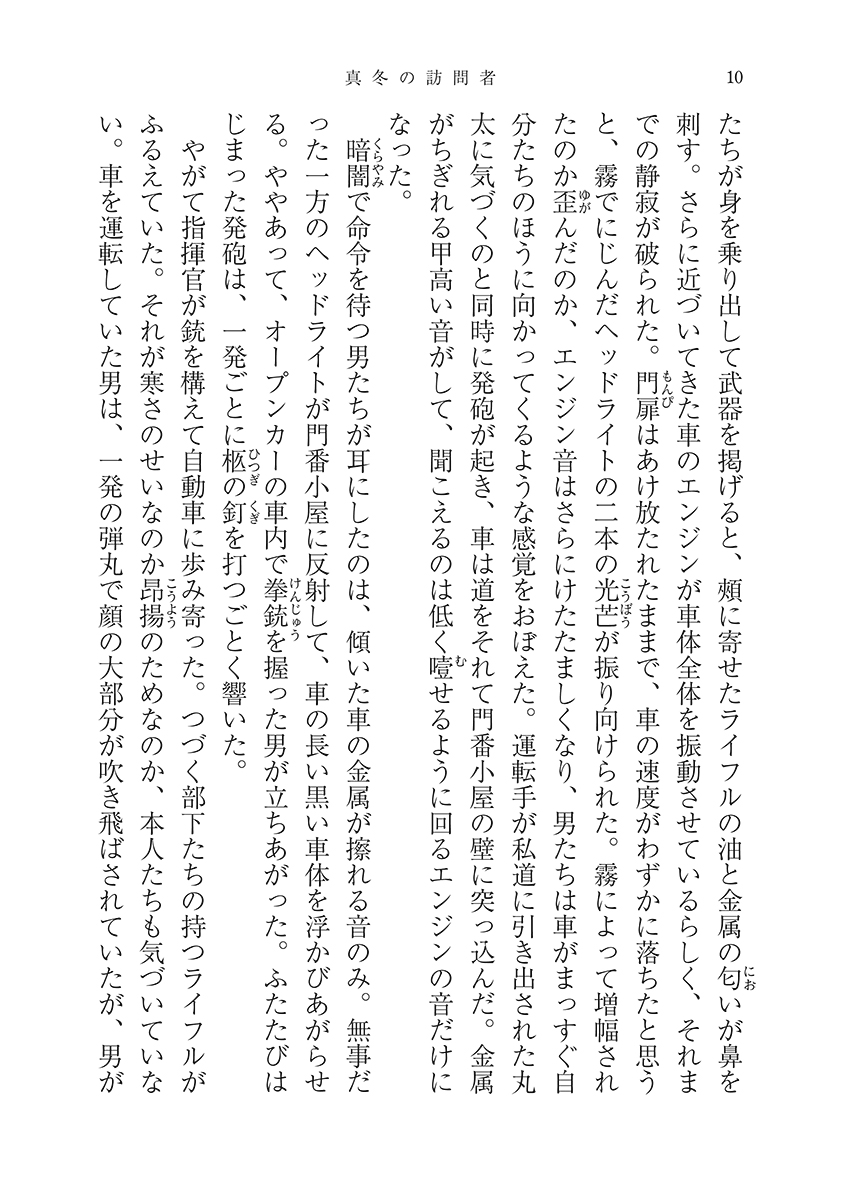 真冬の訪問者
10
たちが身を乗り出して武器を掲げると、頰に寄せたライフルの油と金属の匂いが鼻を
刺す。さらに近づいてきた車のエンジンが車体全体を振動させているらしく、それま
での静寂が破られた。門扉はあけ放たれたままで、車の速度がわずかに落ちたと思う
と、霧でにじんだヘッドライトの二本の光芒が振り向けられた。霧によって増幅され
たのか歪んだのか、エンジン音はさらにけたたましくなり、男たちは車がまっすぐ自
分たちのほうに向かってくるような感覚をおぼえた。運転手が私道に引き出された丸
太に気づくのと同時に発砲が起き、車は道をそれて門番小屋の壁に突っ込んだ。金属
がちぎれる甲高い音がして、聞こえるのは低く噎せるように回るエンジンの音だけに
なった。
暗闇で命令を待つ男たちが耳にしたのは、傾いた車の金属が擦れる音のみ。無事だ
った一方のヘッドライトが門番小屋に反射して、車の長い黒い車体を浮かびあがらせ
る。ややあって、オープンカーの車内で拳銃を握った男が立ちあがった。ふたたびは
じまった発砲は、一発ごとに柩の釘を打つごとく響いた。
やがて指揮官が銃を構えて自動車に歩み寄った。つづく部下たちの持つライフルが
ふるえていた。それが寒さのせいなのか昂揚のためなのか、本人たちも気づいていな
い。車を運転していた男は、一発の弾丸で顔の大部分が吹き飛ばされていたが、男が